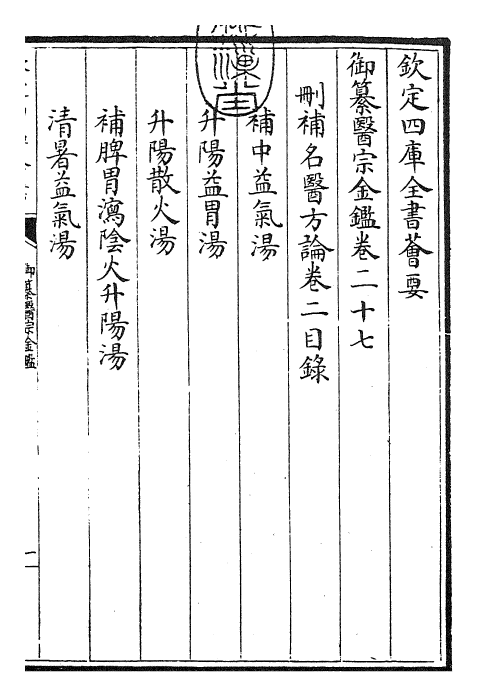 欽定四庫全書薈要
御纂醫宗金鑑卷二十七
刪補名醫方論卷二目錄
補中益氣湯
升陽益胃湯
升陽散火湯
補脾胃瀉陰火升陽湯
清暑益氣湯
御纂醫宗金鑑
一